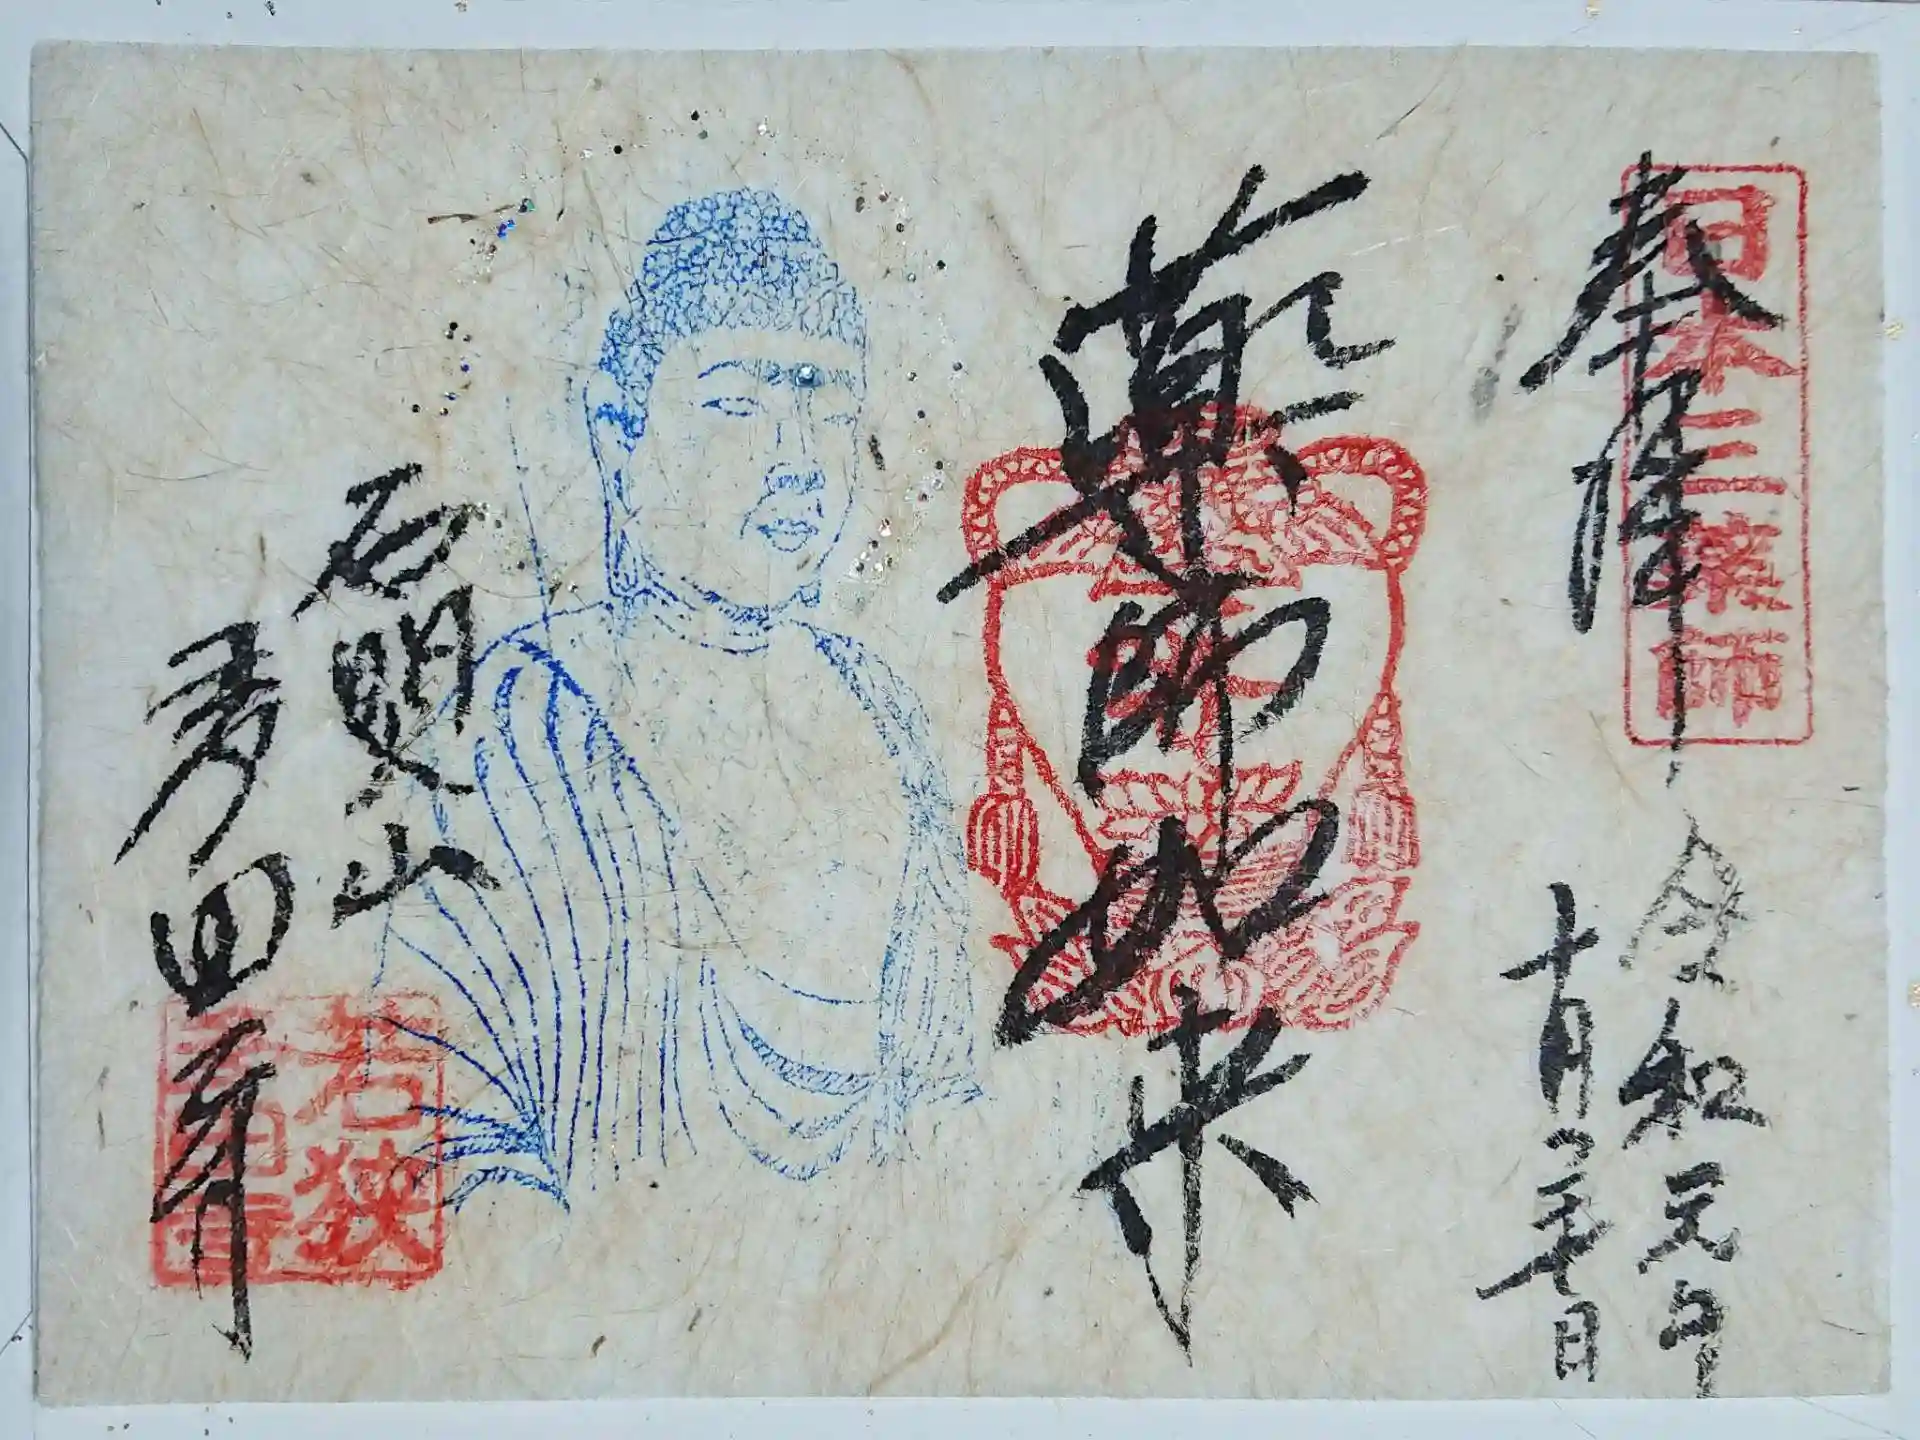 奉拝
日本三薬師
令和元年
十月二十七日
薬師如来
石照山
多田寺
若狭
多田寺